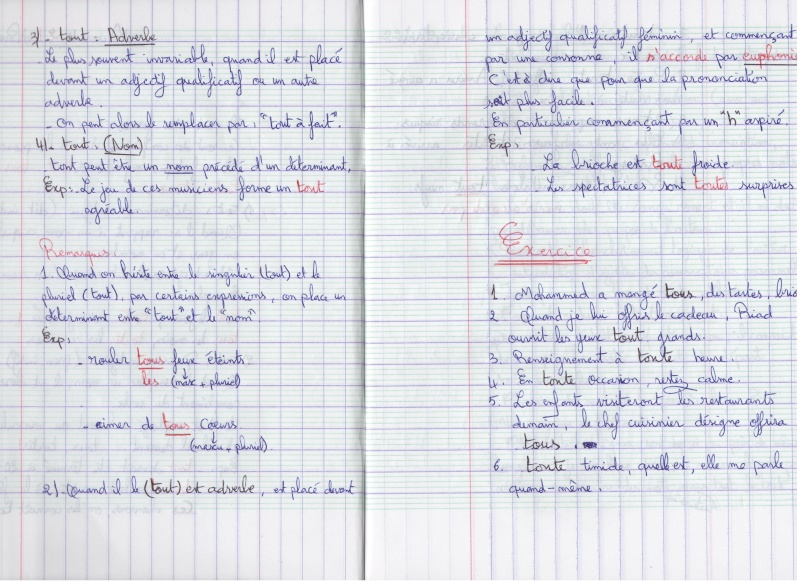 3/- tout : Adverbe
- Le plus souvent invariable, quand il est placé
devant un adjectif qualificatif ou un autre
adverbe.
- On peut alors le remplacer par : "tout à fait".
4/- tout : (Nom)
tout peut être un nom précédé d'un déterminant,
Exp:- Le jeu de ces musiciens forme un tout
agréable.
Remarques :
1. Quand on hésite entre le singulier (tout) et le
pluriel (tout), par certains expressions, on place un
déterminant entre "tout" et le "nom".
Exp:
- rouler tous feux éteints.
les (masc + pluriel)
- aimer de tous cœurs
(mascu + pluriel)
2/- Quand il le (tout) est adverbe, et placé devant
un adjectif qualificatif féminin, et commençant
par une consonne, il s'accorde par euphonie
C'est à dire que pour que la prononciation
soit plus facile.
- En particulier commençant par un "h" aspiré.
Exp:
La brioche est toute froide.
- Les spectatrices sont toutes surprises
Exercice
1. Mohammed a mangé tous, des tartes, brio
2 Quand je lui offris le cadeau, Riad
ouvrit les yeux tout grands.
3. Renseignement à toute heure.
4. En toute occasion, restez calme.
5. Les enfants visiteront les restaurants
demain, le chef cuisinier désigne offrira
tous.
6. toute timide, quelle est, elle me parle
quand-même.